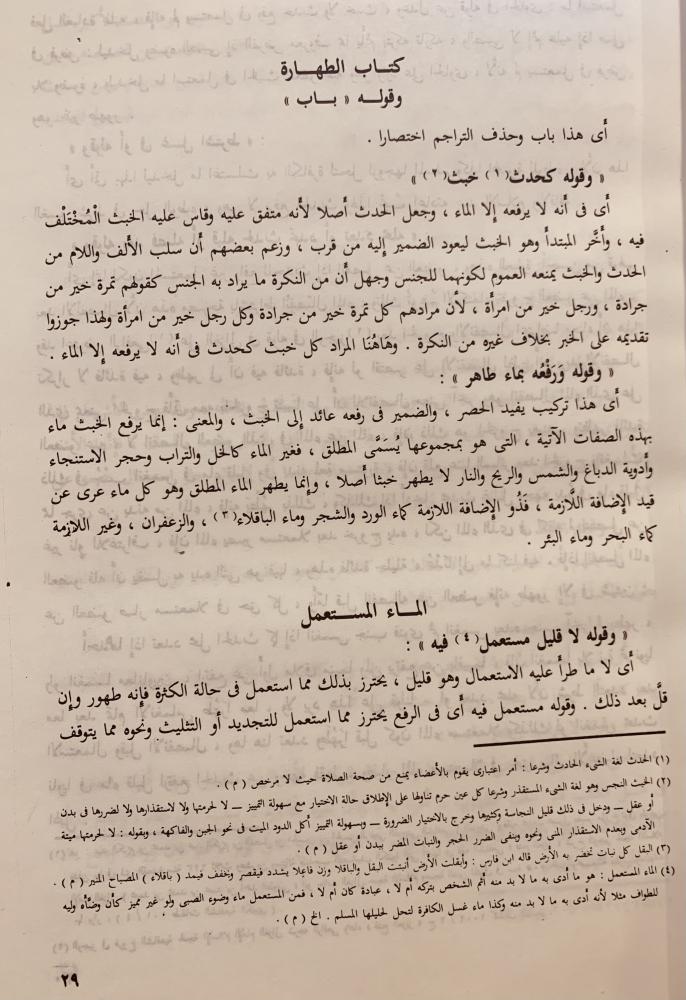 كتاب الطهارة
وقوله « باب »
أى هذا باب وحذف التراجم اختصارا .
« وقوله كحدث(١) خبث(٢) »
أى فى أنه لا يرفعه إلا الماء ، وجعل الحدث أصلا لأنه متفق عليه وقاس عليه الخبث الْمُخْتَلْف
فيه ، وأخَّر المبتدأ وهو الخبث ليعود الضمير إليه من قرب ، وزعم بعضهم أن سلب الألف واللام من
الحدث والخبث يمنعه العموم لكونهما للجنس وجهل أن من النكرة ما يراد به الجنس كقولهم تمرة خير من
جرادة ، ورجل خير من امرأة ، لأن مرادهم كل تمرة خير من جرادة وكل رجل خير من امرأة ولهذا جوزوا
تقديمه على الخبر بخلاف غيره من النكرة . وهَاهُنَا المراد كل خبث كحدث فى أنه لا يرفعه إلا الماء .
« وقوله وَرَفْعُه بماء طاهر » :
أى هذا تركيب يفيد الحصر ، والضمير فى رفعه عائد إلى الخبث ، والمعنى : إنما يرفع الخبث ماء
بهذه الصفات الآتية ، التى هو بمجموعها يُسَمَّى المطلق ، فغير الماء كالخل والتراب وحجر الاستنجاء
وأدوية الدباغ والشمس والريح والنار لا يطهر خبثا أصلا ، وإنما يطهر الماء المطلق وهو كل ماء عرى عن
قيد الإضافة اللَّازمة ، فَذُو الإضافة اللازمة كماء الورد والشجر وماء الباقلاء(٣) ، والزعفران ، وغير اللازمة
كماء البحر وماء البئر .
المـاء المستعمل
« وقوله لا قليل مستعمل(٤) فيه » :
أى لا ما طرأ عليه الاستعمال وهو قليل ، يحترز بذلك مما استعمل فى حالة الكثرة فإنه طهور وإن
قلَّ بعد ذلك . وقوله مستعمل فيه أى فى الرفع يحترز مما استعمل للتجديد أو التثليث ونحوه مما يتوقف
(١) الحدث لغة الشىء الحادث وشرعا : أمر اعتبارى يقوم بالأعضاء يمنع من صحة الصلاة حيث لا مرخص ( م ) .
(٢) الخبث النجس وهو لغة الشىء المستقذر وشرعا كل عين حرم تناولها على الإطلاق حالة الاختيار مع سهولة التمييز ــ لا لحرمتها ولا لاستقذارها ولا لضررها فى بدن
أو عقل ــ ودخل فى ذلك قليل النجاسة وكثيرها وخرج بالاختيار الضرورة ــ وبسهولة التمييز أكل الدود الميت فى نحو الجبن والفاكهة ، وبقوله : لا لحرمتها ميتة
الآدمى وبعدم الاستقذار المنى ونحوه وبنفى الضرر الحجر والنبات المضر ببدن أو عقل ( م ) .
(٣) البقل كل نبات تخضر به الأرض قاله ابن فارس : وأبقلت الأرض أنبتت البقل والباقلا وزن فاعلا يشدد فيقصر وتخفف فيمد ( باقلاء ) المصباح المنير ( م ) .
(٤) الماء المستعمل : هو ما أدى به ما لا بد منه أثم الشخص بتركه أم لا ، عبادة كان أم لا ، فمن المستعمل ماء وضوء الصبى ولو غير مميز كأن وضَّأه وليه
للطواف مثلا لأنه أدى به ما لا بد منه وكذا ماء غسل الكافرة لتحل لحليلها المسلم . الخ ( م ) .
٢٩